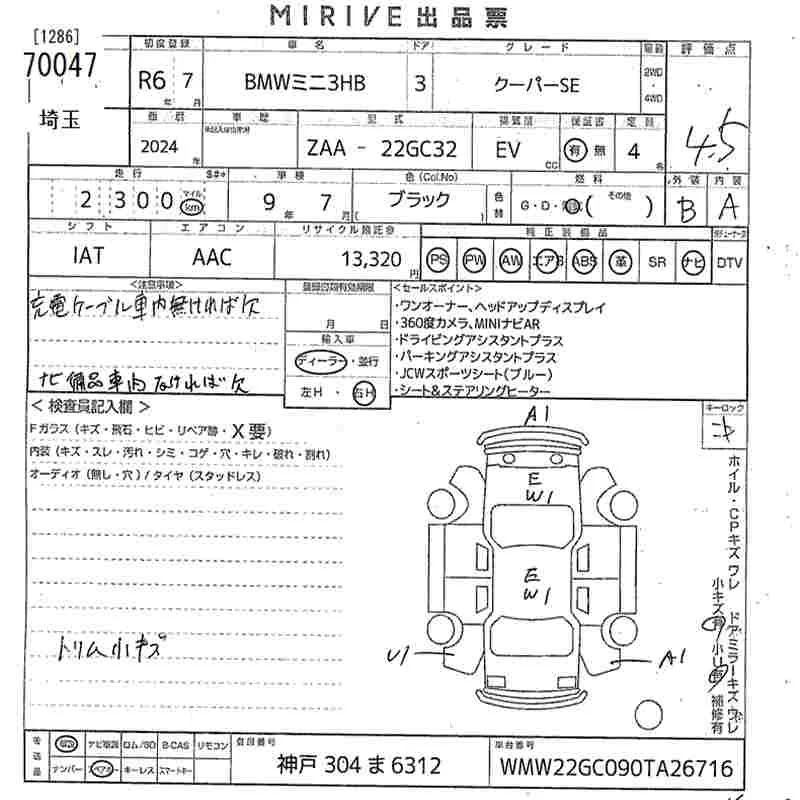 MIRIVE 出品票
[1286]
70047
埼玉
初度登録 車名 ドア グレード 駆動 評価点
R6 7 年 月 BMWミニ3HB 3 クーパーSE 2WD・4WD 4.5
車歴 型式 排気量 保証書 定員
2024 年 ZAA - 22GC32 EV CC 有 無 4 名
走行 車検 色(Col.No) 燃料 外装 内装
2300 マイル km 9 年 7 月 ブラック ( ) 色替 G・D・ ( その他 ) B A
シフト エアコン リサイクル預託金 純正装備品
IAT AAC 13,320 円 PS PW AW エアB ABS 革 SR ナビ DTV
<注意事項>
充電ケーブル車内無ければ欠
ナビ備品車内なければ欠
月 日
輸入車
ディーラー・並行
左H・右H
<セールスポイント>
・ワンオーナー、ヘッドアップディスプレイ
・360度カメラ、MINIナビAR
・ドライビングアシスタントプラス
・パーキングアシスタントプラス
・JCWスポーツシート(ブルー)
・シート&ステアリングヒーター
<検査員記入欄>
Fガラス(キズ・飛石・ヒビ・リペア跡・X要)
内装(キズ・スレ・汚れ・シミ・コゲ・穴・キレ・破れ・割れ)
オーディオ(無し・穴)/タイヤ(スタッドレス)
トリム小キズ
キーロック
A1
E
W1
E
W1
U1
A1
ホイル・CPキズワレ
ドアミラーキズワレ
小キズ有
小U有
補修有
後送品 ナビ取説 ロム/SD B-CAS リモコン
ナンバー スペアキー キーレス スマートキー
登録番号
神戸 304 ま 6312
車台番号
WMW22GC090TA26716